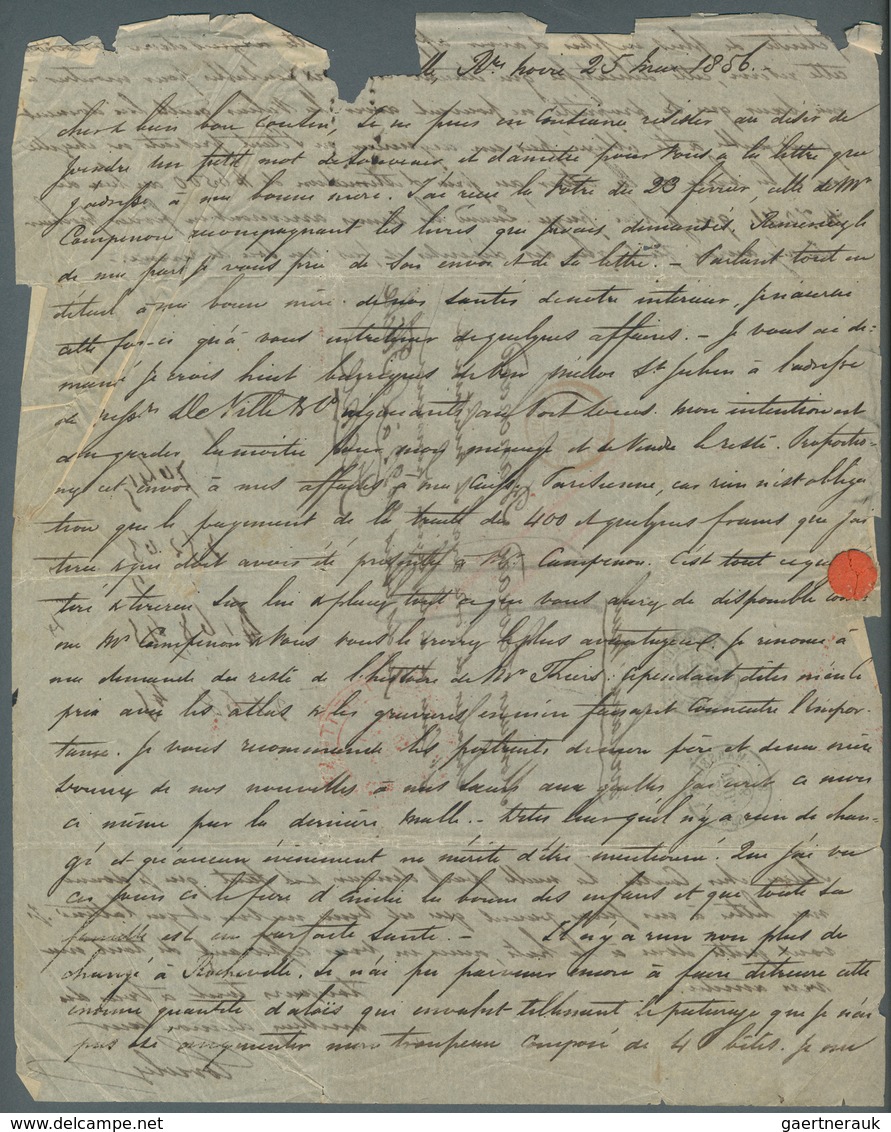 Rre noire 25 mai 1856.-
cher & bien bon Cousin, Je ne puis en Conscience resister au désir de
joindre un petit mot de souvenir et d'amitié pour vous à la lettre que
j'adresse à ma bonne mère. J'ai reçu la vôtre du 23 février, celle de Mr
Campenon accompagnant les livres que j'avais demandés. Remerciez le
de ma part je vous prie de son envoi et de sa lettre. - Parlant tout en
détail à ma bonne mère de nos santés de notre interieur, je n'aurai
cette fois-ci qu'à vous entretenir de quelques affaires. - Je vous ai de-
mandé je crois huit barriques de vin médoc St Julien à l'adresse
de Messrs De Ville & Co négociants au Port Louis. Mon intention est
d'en garder la moitié pour mon menage et de vendre le reste. Proportio-
nez cet envoi à mes affaires à ma Caisse Parisienne, car rien n'est obliga-
tion que le payement de la traite de 400 et quelques francs que j'ai
tirée & qui doit avoir été présentée à Mr Campenon. C'est tout ce que
tiré & tirerai sur lui & placez tout ce que vous aurez de disponible
Mr Campenon & vous vous le croirez le plus avantageux. Je renonce à
ma demande du reste de l'histoire de Mr Thiers. Cependant dites m'en le
prix avec les atlas & les gravures en m'en faisant connaitre l'impor-
tance. Je vous recommande les portraits de mon père et de ma mère
Donnez de nos nouvelles à mes sœurs aux quelles j'ai écrit ce mois
ci même par la dernière malle. - Dites leur qu'il n'y a rien de chan-
gé et qu'aucun évenement ne mérite d'être mentionné. Que j'ai vu
ces jours ci le frère d'Emilie la bonne des enfans et que toute sa
famille est en parfaite santé. - Il n'y a rien non plus de
changé à Rocheville. Je n'ai pu parvenir encore à faire détruire cette
énorme quantité d'aloës qui envahit tellement le paturage que je n'ai
pas pu augmenter mon troupeau composé de 4 bêtes. Je me